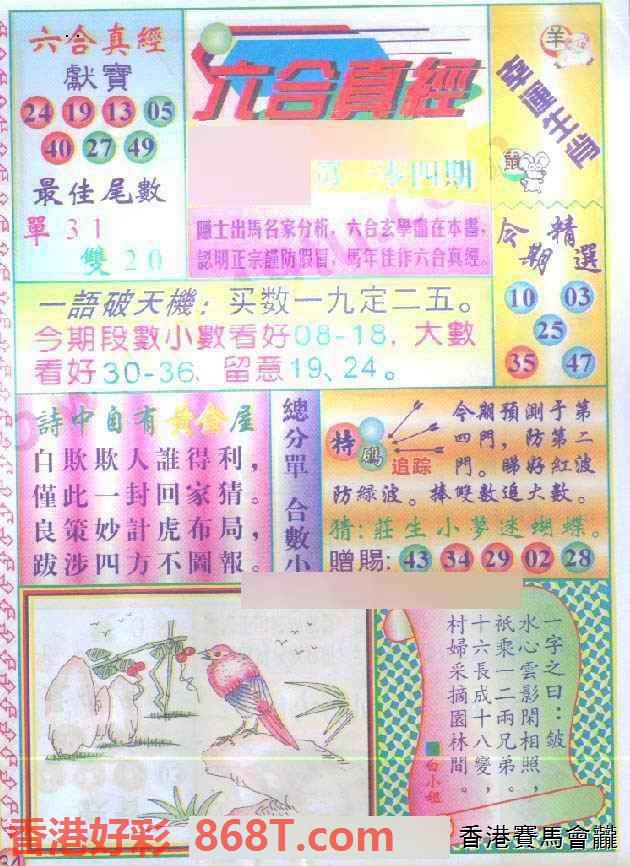 六合真經
獻寶
24 19 13 05
40 27 49
最佳尾數
單 3 1
雙 2 0
六合真經
四期
隱士出馬名家分析，六合玄學盡在本書，
認明正宗謹防假冒，馬年佳作六合真經。
幸運生肖
羊
鼠
今期精選
10 03
25
35 47
一語破天機：买数一九定二五。
今期段數小數看好08-18，大數
看好30-36、留意19、24。
詩中自有黃金屋
自欺欺人誰得利，
僅此一封回家猜。
良策妙計虎布局，
跋涉四方不圖報。
總分單 合數小
特碼
追踪
今期預測于第
四門，防第二
門。睇好紅波
防緑波。捧雙數追大數。
猜:莊生小夢迷蝴蝶。
贈賜: 43 34 29 02 28
一字之曰：皴
水心雲影閑相照，
祇乘一二兩兄弟。
十六長成十八變，
村婦采摘園林間。
白小姐
香港好彩 868T.com
香港賽馬會